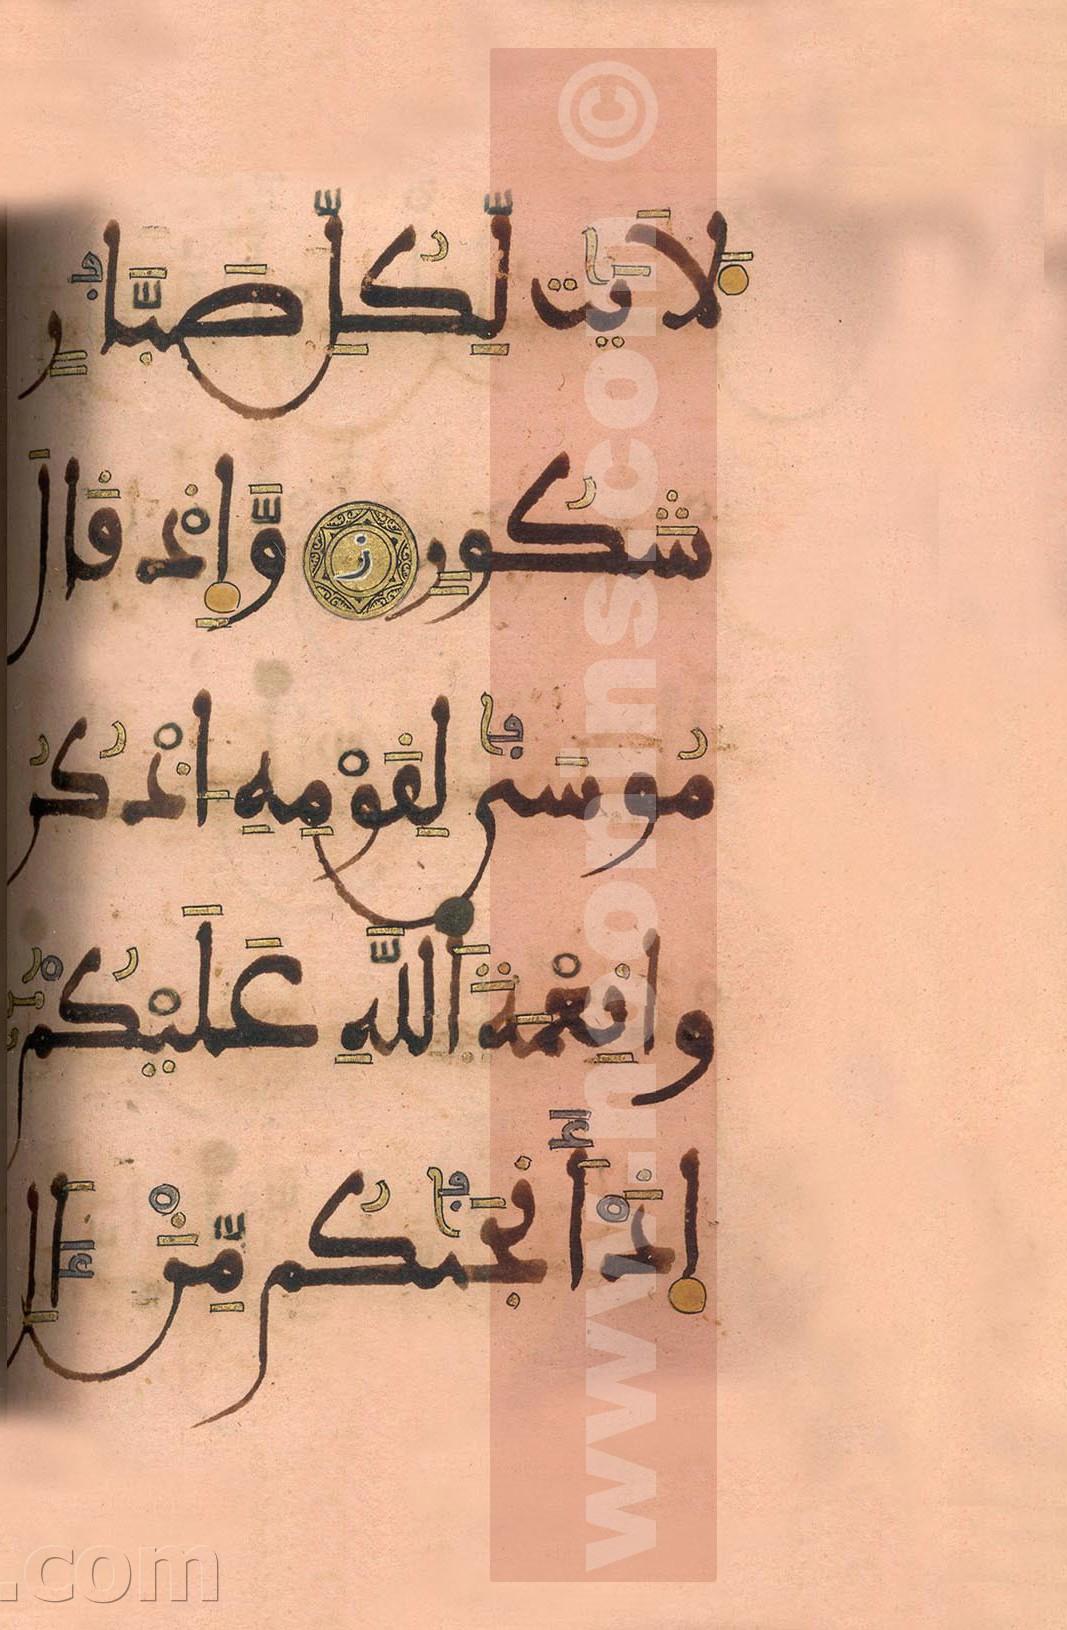 لَأيَتٍ لِّكُلِّ صَبَّارٍ
شَكُورٍ ز وَّإِذْ قَالَ
مُوسَى لِقَوْمِهِ اذْكُرُ
وا نِعْمَةَ اللَّهِ عَلَيْكُمْ
إِذَ أَنجَىكُم مِّنَ الِ
.com